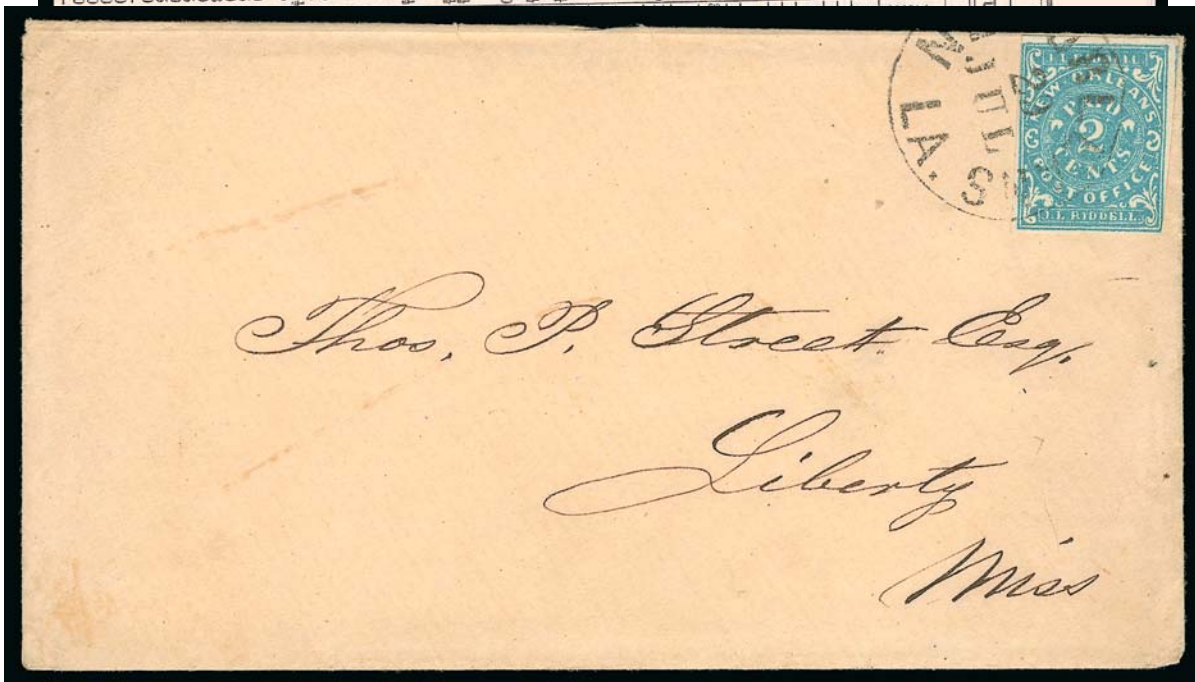 J.L. RIDDELL
NEW ORLEANS
PAID
2
CENTS
POST OFFICE
J.L. RIDDELL.
LA.
JUL
Thos. P. Street Esq.
Liberty
Miss